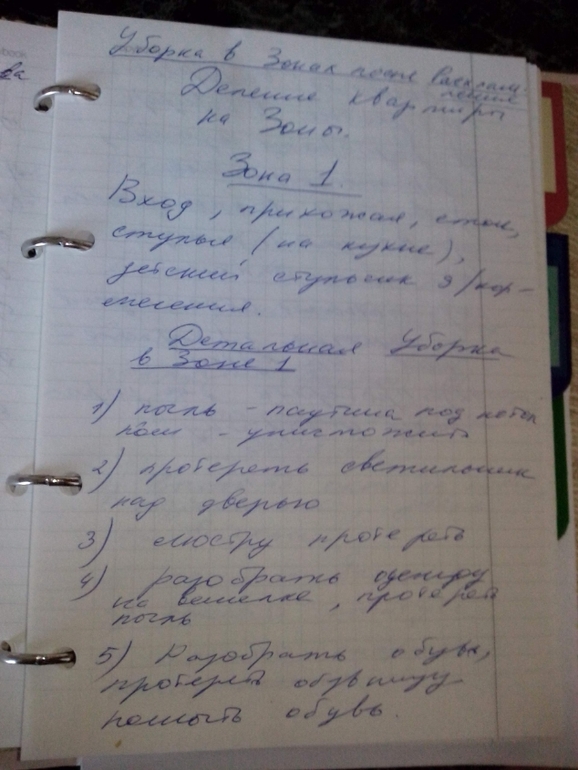 Уборка в Зонах после Расхлам-
ления
Деление квартиры
на Зоны.
Зона 1.
Вход, прихожая, стол,
стулья (на кухне),
детский стульчик д/кор-
мления.
Детальная Уборка
в Зоне 1
1) пыль - паутина под потол
ком - уничтожить
2) протереть светильник
над дверью
3) люстру протереть
4) разобрать одежду
на вешалке, протереть
пыль
5) Разобрать обувь,
протереть обувницу
помыть обувь.
ва